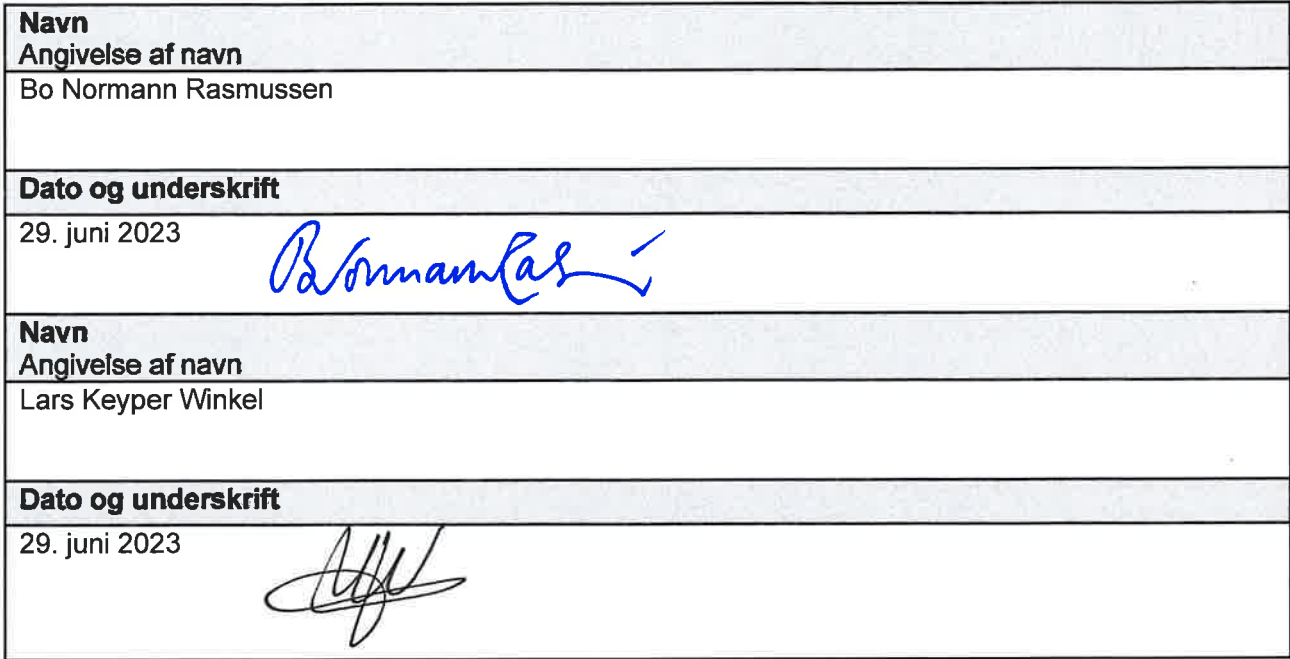 Navn
Angivelse af navn
Bo Normann Rasmussen
Dato og underskrift
29. juni 2023
Navn
Angivelse af navn
Lars Keyper Winkel
Dato og underskrift
29. juni 2023